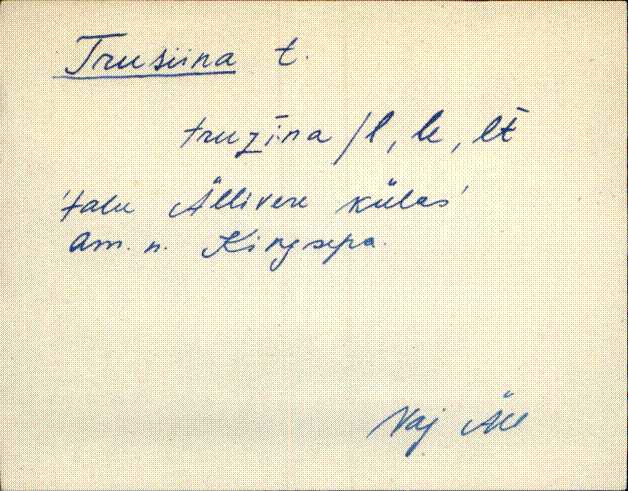 Trusiina t.
truzīna /l, le, lt̄
'talu Ällivere külas'
am. n. Kingsepa.
Vaj Äll